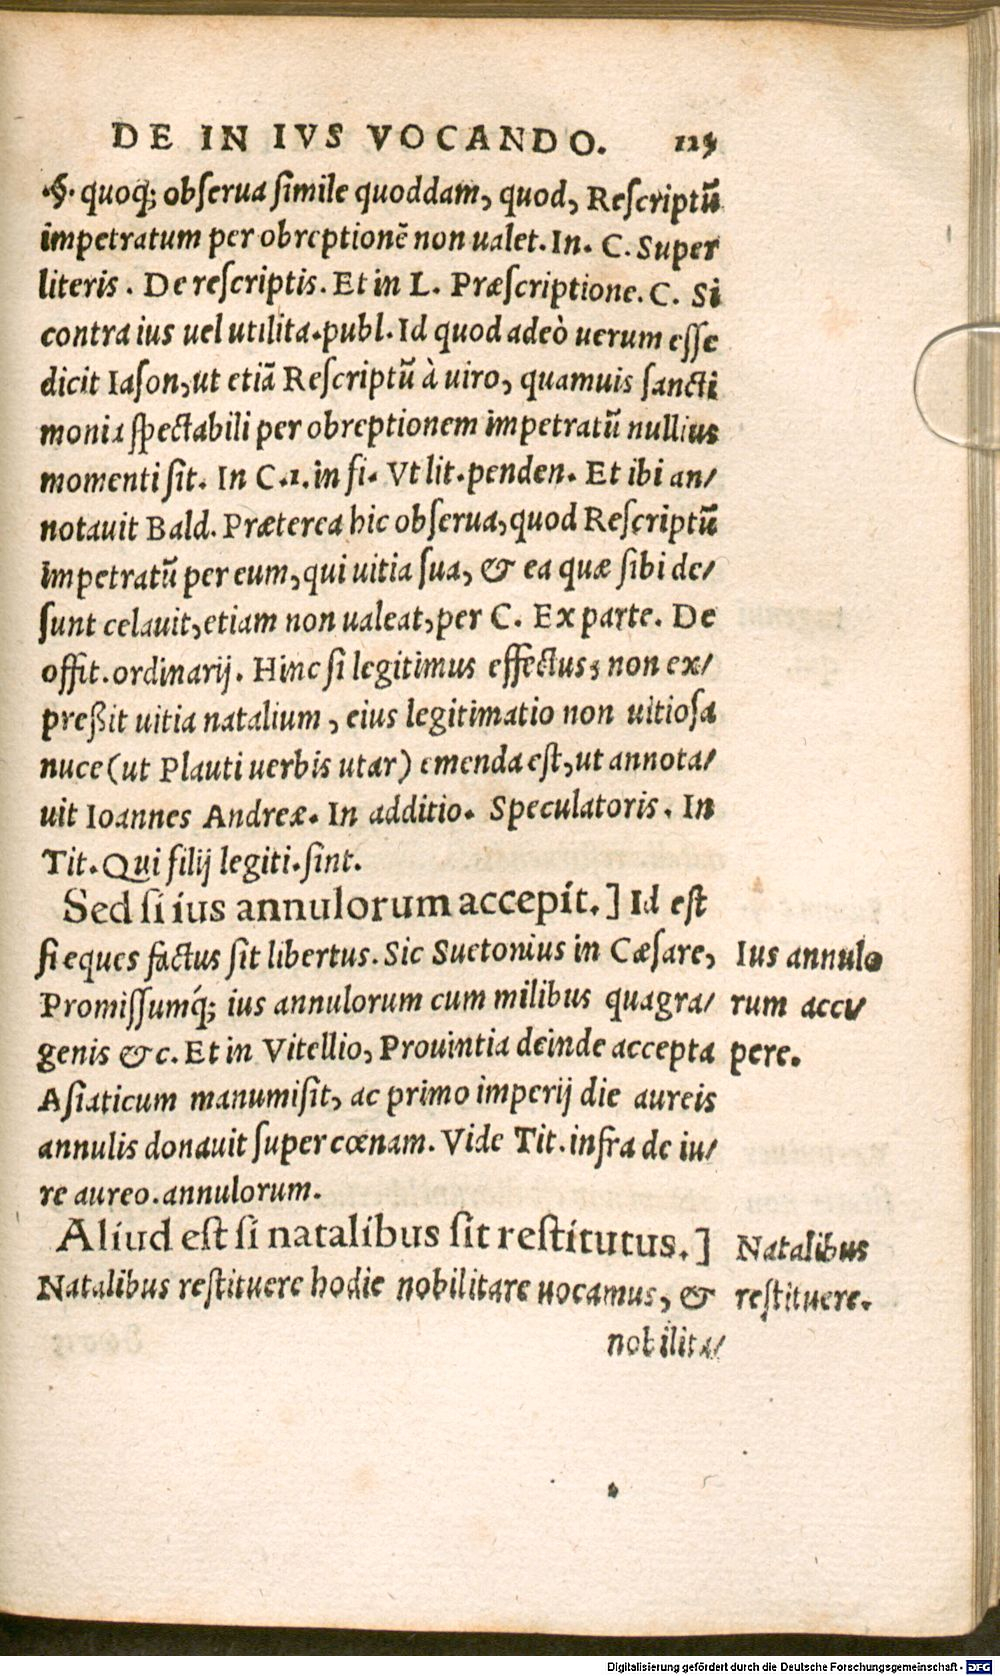 DE IN IVS VOCANDO. 125
.§. quoq; obſerua ſimile quoddam, quod, Reſcriptū
impetratum per obreptionē non ualet. In. C. Super
literis. De reſcriptis. Et in L. Præſcriptione. C. Si
contra ius uel utilita.publ. Id quod adeò uerum eſſe
dicit Iaſon, ut etiā Reſcriptū à uiro, quamuis ſancti
monia ſpectabili per obreptionem impetratū nullius
momenti ſit. In C.1. in fi. Vt lit.penden. Et ibi an/
notauit Bald. Præterea hic obſerua, quod Reſcriptū
impetratū per eum, qui uitia ſua, & ea quæ ſibi de/
ſunt celauit, etiam non ualeat, per C. Ex parte. De
offit.ordinarij. Hinc ſi legitimus effectus, non ex/
preßit uitia natalium, eius legitimatio non uitioſa
nuce (ut Plauti uerbis utar) emenda eſt, ut annota/
uit Ioannes Andreæ. In additio. Speculatoris. In
Tit. Qui filij legiti.ſint.
Sed ſi ius annulorum accepit.] Id eſt
ſi eques factus ſit libertus. Sic Suetonius in Cæſare,
Promiſſumq́; ius annulorum cum milibus quagra/
genis &c. Et in Vitellio, Prouintia deinde accepta
Aſiaticum manumiſit, ac primo imperij die aureis
annulis donauit ſuper cœnam. Vide Tit. infra de iu/
re aureo.annulorum.
Ius annulo
rum acci/
pere.
Aliud eſt ſi natalibus ſit reſtitutus.]
Natalibus reſtituere hodie nobilitare uocamus, &
Natalibus
reſtituere.
nobilita/
Digitalisierung gefördert durch die Deutsche Forschungsgemeinschaft - DFG